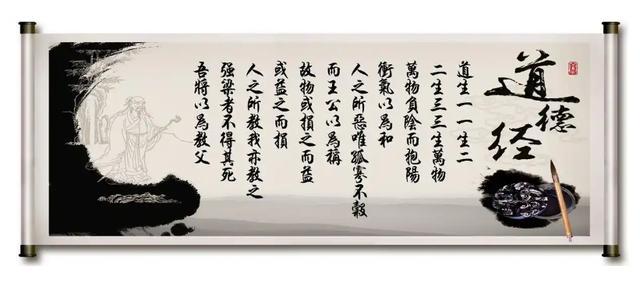 道德经
道生一一生二
二生三三生萬物
萬物負陰而抱陽
衝氣以為和
人之所惡唯孤寡不穀
而王公以為稱
故物或損之而益
或益之而損
人之所教我亦教之
强梁者不得其死
吾將以為教父